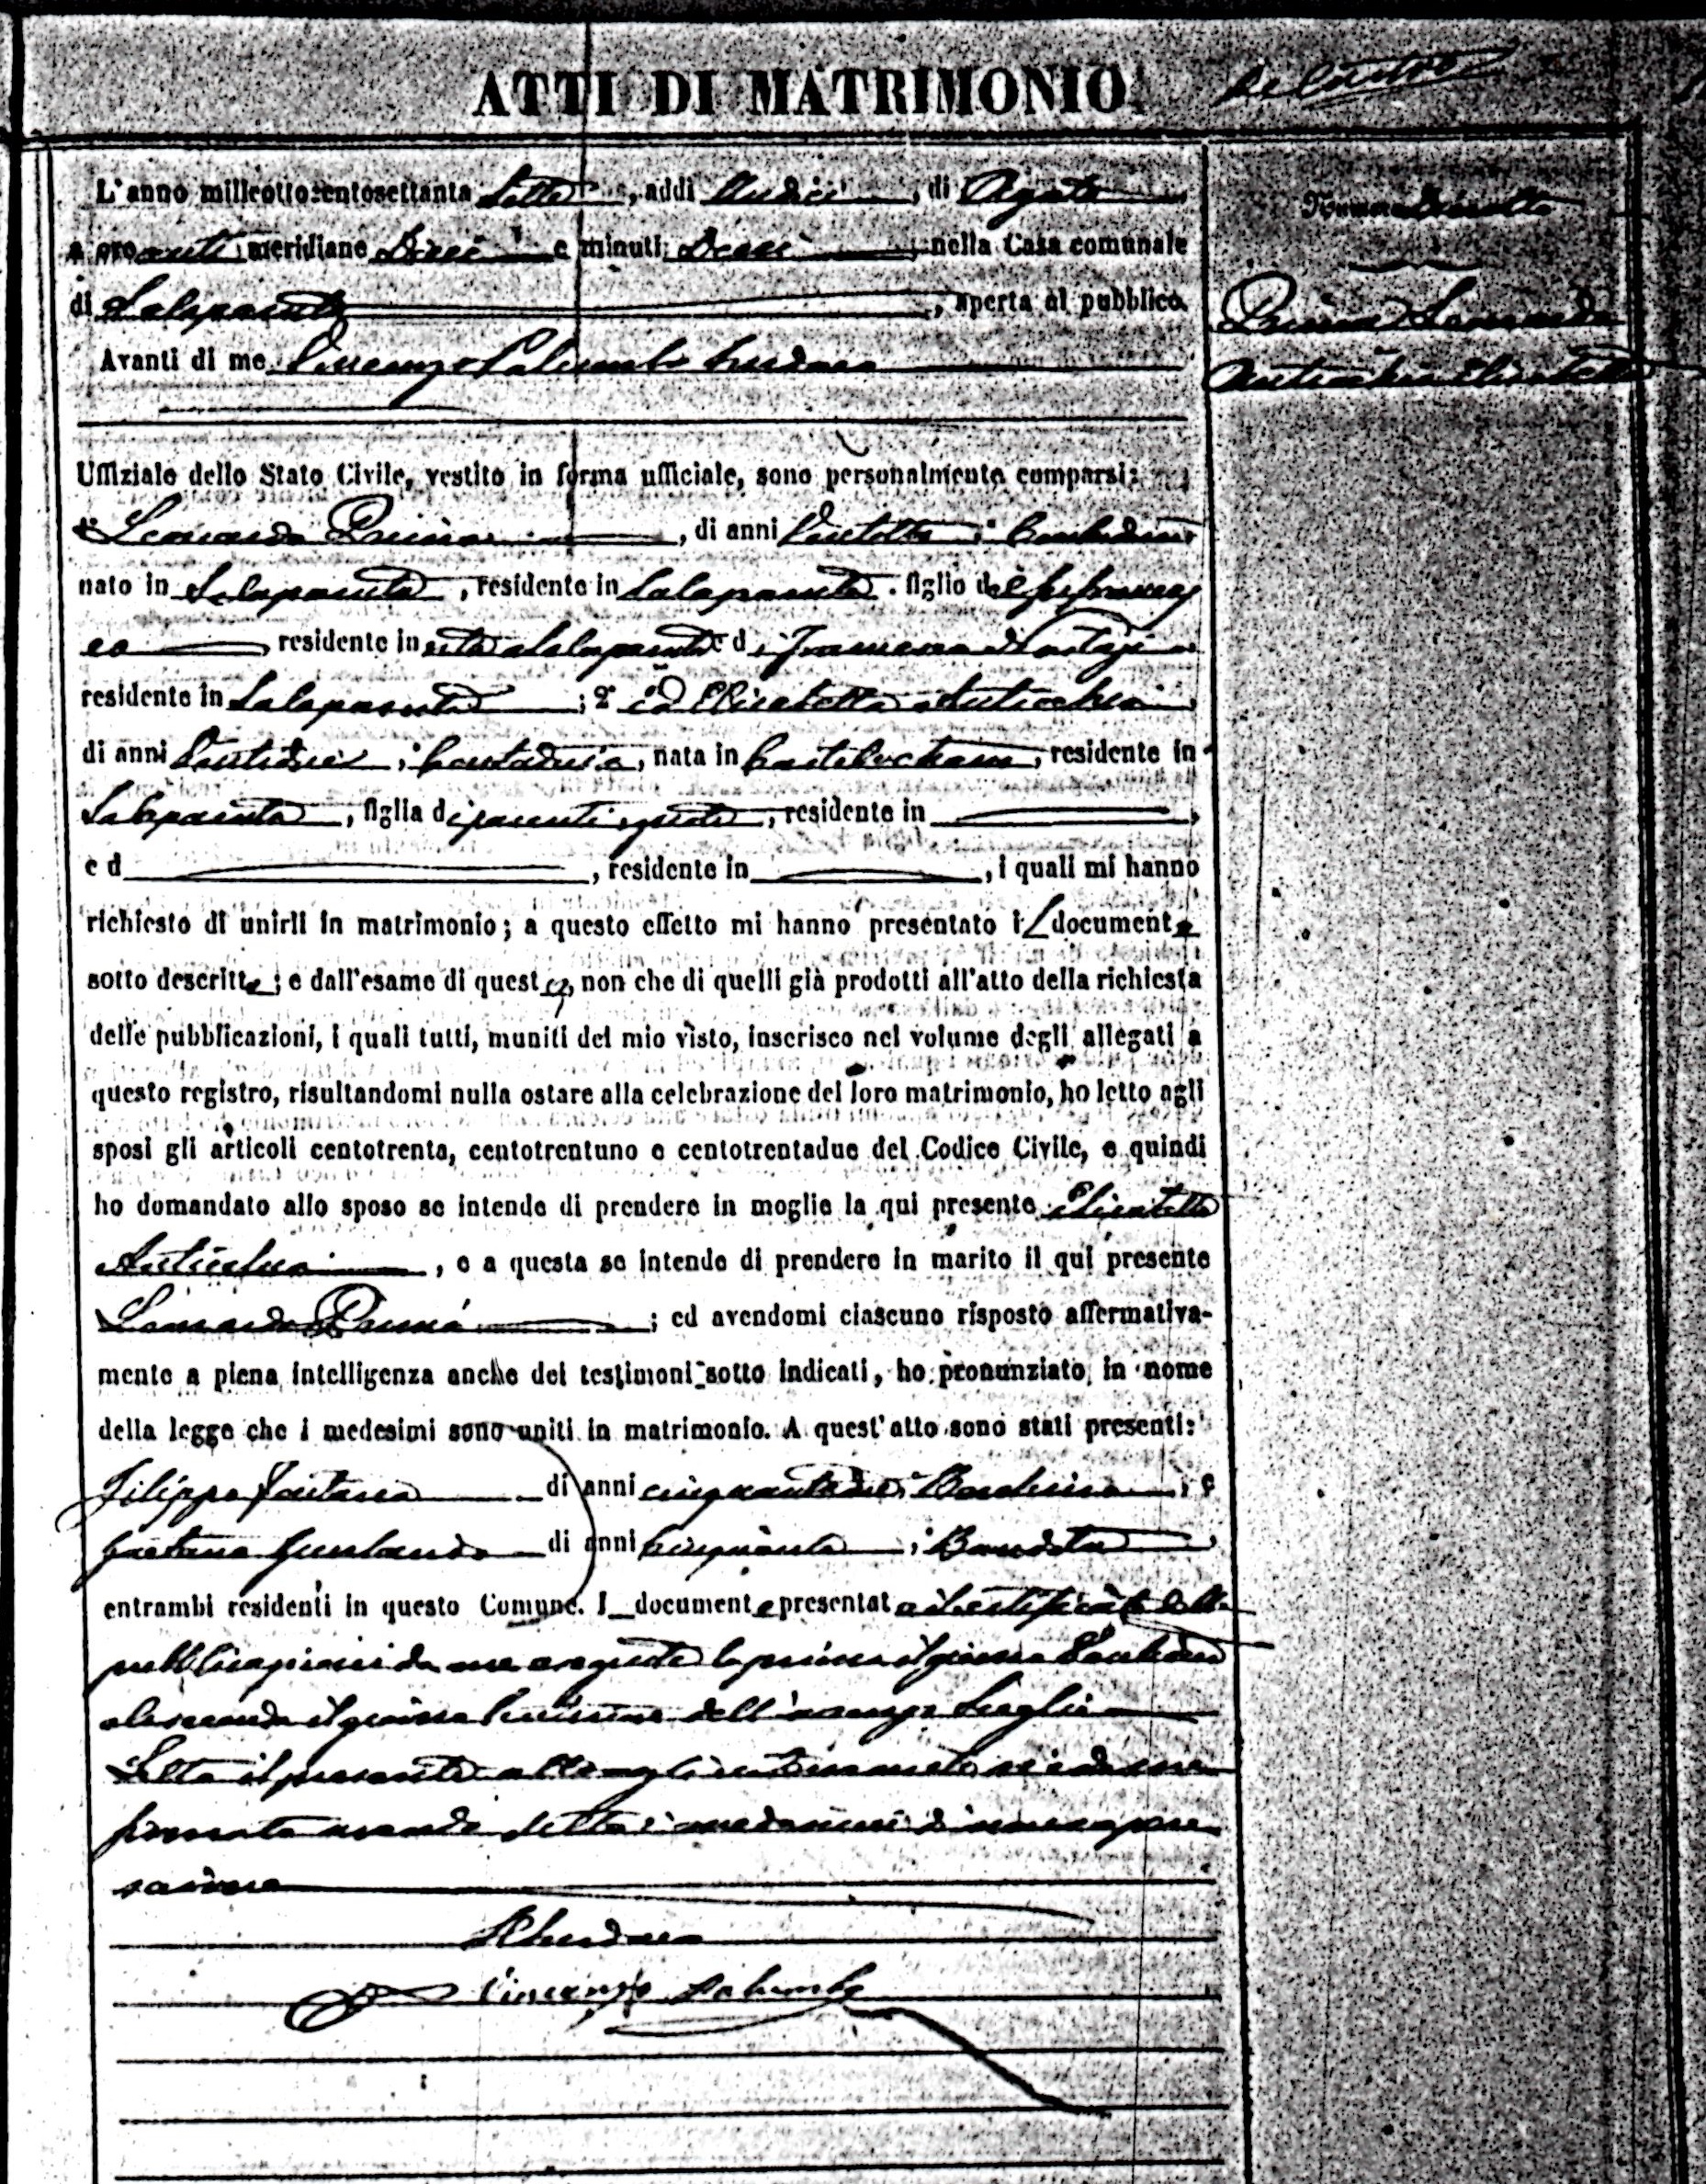 ATTI DI MATRIMONIO.
L'anno milleottocentosettanta Sette, addi Undici, di Agosto
a ore anti meridiane Dieci e minuti Dieci, nella Casa comunale
di Salaparuta, aperta al pubblico.
Avanti di me Vincenzo Palumbo Sindaco
Numero
Primà Leonardo
Antiochia Elisabetta
Uffiziale dello Stato Civile, vestito in forma ufficiale, sono personalmente comparsi:
1° Leonardo Primà, di anni Ventotto, Contadino
nato in Salaparuta, residente in Salaparuta, figlio del fu Frances
co residente in vita a Salaparuta e di Francesca
residente in Salaparuta; 2° ed Elisabetta Antiochia
di anni, Contadina, nata in, residente in
Salaparuta, figlia di parenti ignoti, residente in
e d, residente in, i quali mi hanno
richiesto di unirli in matrimonio; a questo effetto mi hanno presentato il documento
sotto descritto; e dall'esame di questo, non che di quelli già prodotti all'atto della richiesta
delle pubblicazioni, i quali tutti, muniti del mio visto, inserisco nel volume degli allegati a
questo registro, risultandomi nulla ostare alla celebrazione del loro matrimonio, ho letto agli
sposi gli articoli centotrenta, centotrentuno e centotrentadue del Codice Civile, e quindi
ho domandato allo sposo se intende di prendere in moglie la qui presente Elisabetta
Antiochia, e a questa se intende di prendere in marito il qui presente
Leonardo Primà; ed avendomi ciascuno risposto affermativa-
mente a piena intelligenza anche dei testimoni sotto indicati, ho pronunziato in nome
della legge che i medesimi sono uniti in matrimonio. A quest'atto sono stati presenti:
Filippo di anni; e
Gaetano di anni Cinquanta,
entrambi residenti in questo Comune. I documento presentato è il certificato delle
pubblicazioni da me eseguite la prima il giorno
e la seconda il giorno dell'andato Luglio
Letto il presente atto agli intervenuti si è da me
firmato avendo detto i medesimi di non sapere
scrivere
Il Sindaco
Vincenzo Palumbo